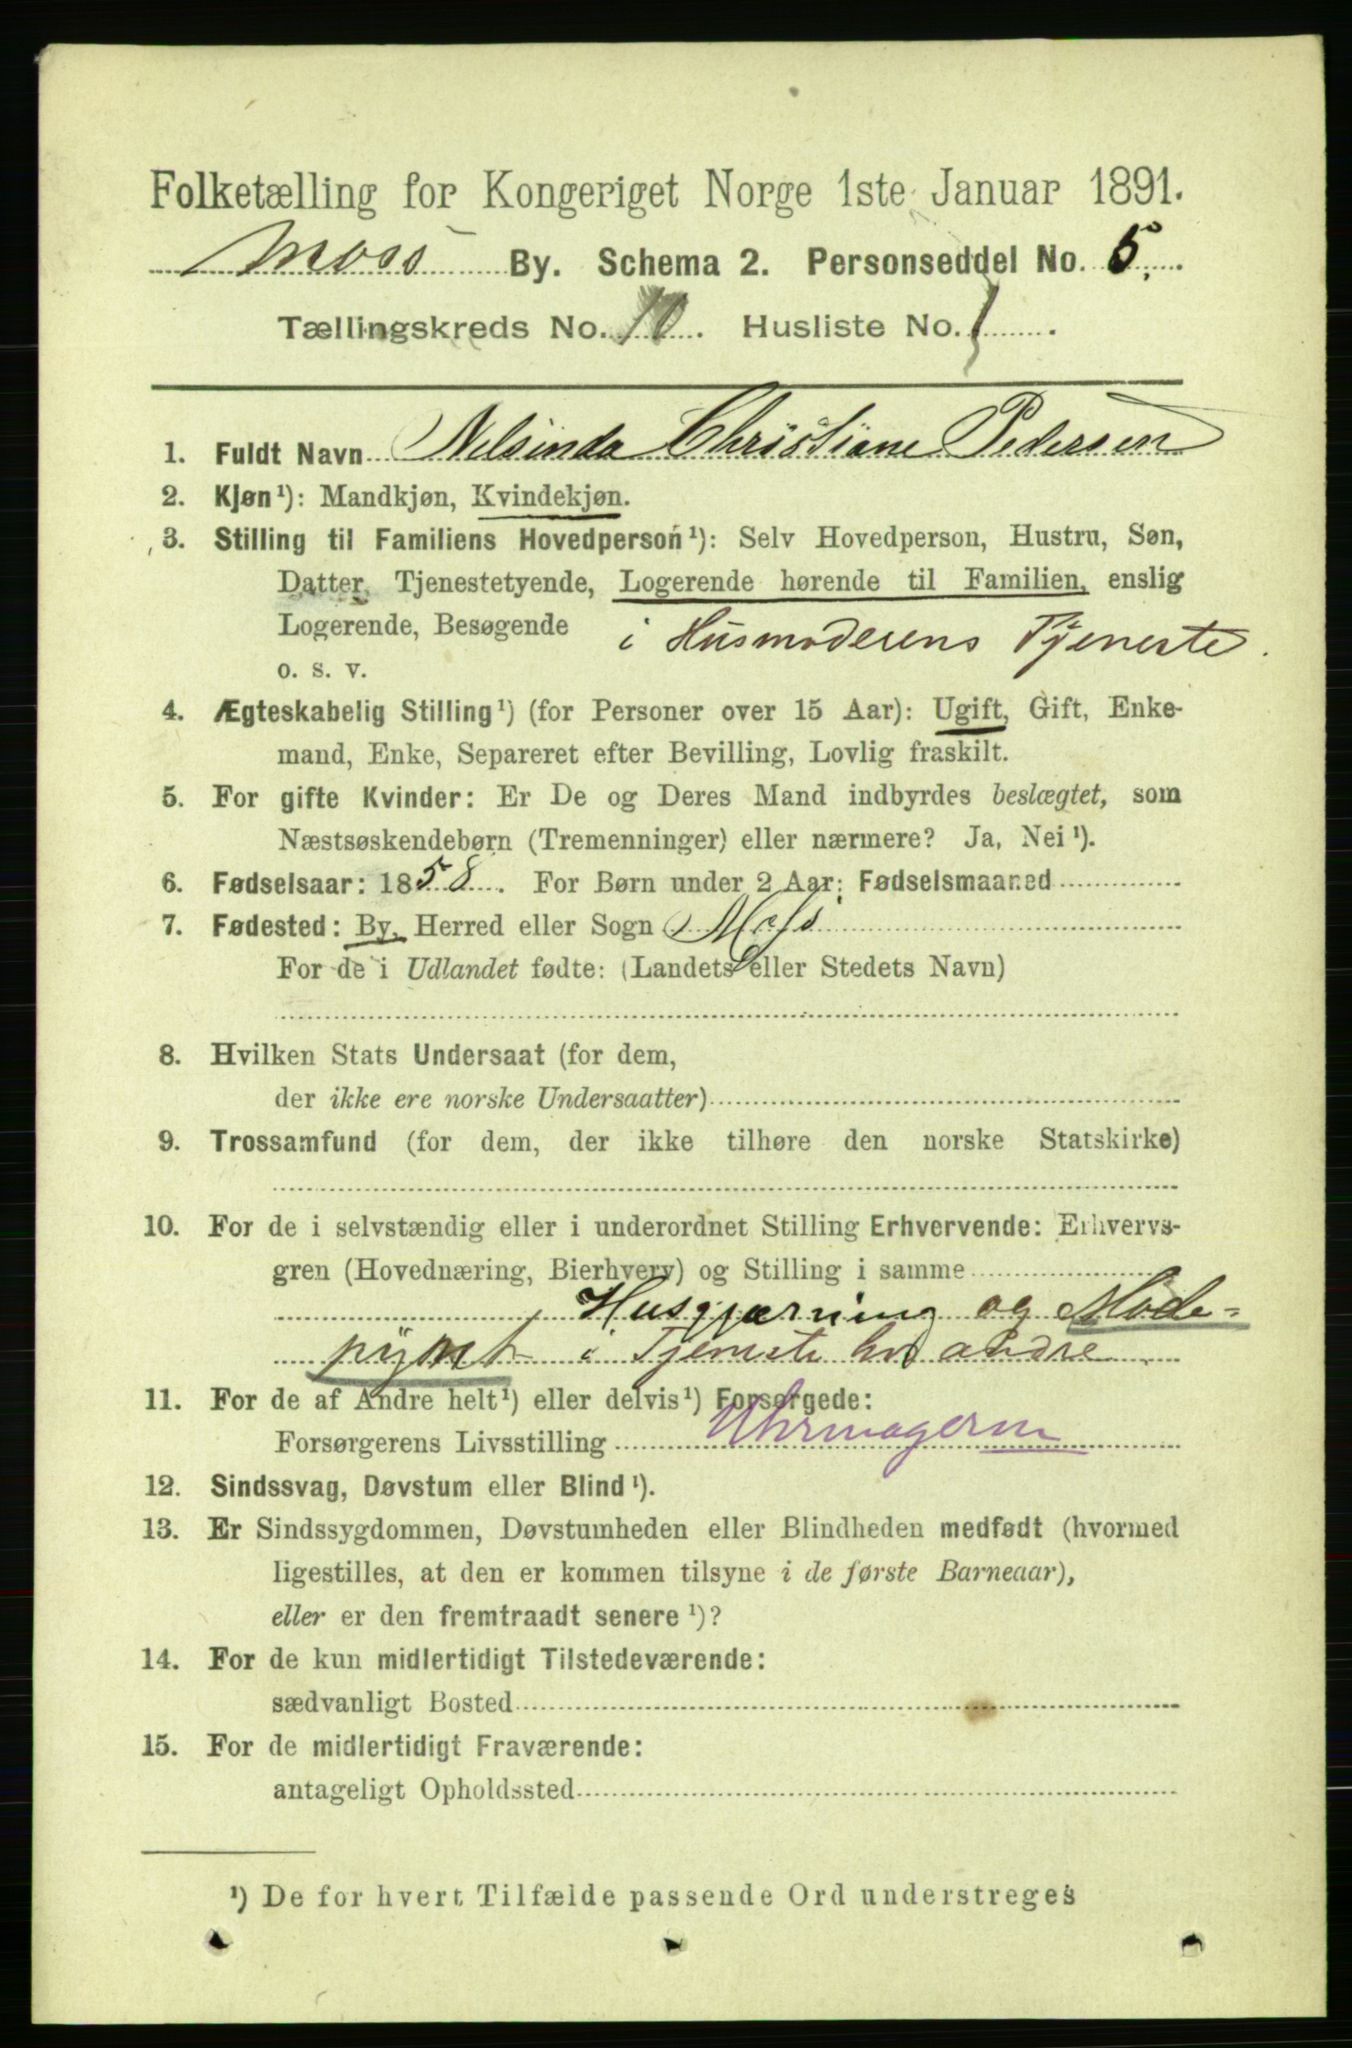 Folketælling for Kongeriget Norge 1ste Januar 1891.
Moss By. Schema 2. Personseddel No. 5.
Tællingskreds No. 10. Husliste No. 1.
1. Fuldt Navn Nelsinda Christiane Pedersen
2. Kjøn¹): Mandkjøn, Kvindekjøn.
3. Stilling til Familiens Hovedperson¹): Selv Hovedperson, Hustru, Søn,
Datter, Tjenestetyende, Logerende hørende til Familien, enslig
Logerende, Besøgende i Husmoderens Tjeneste.
o. s. v.
4. Ægteskabelig Stilling¹) (for Personer over 15 Aar): Ugift, Gift, Enke-
mand, Enke, Separeret efter Bevilling, Lovlig fraskilt.
5. For gifte Kvinder: Er De og Deres Mand indbyrdes beslægtet, som
Næstsøskendebørn (Tremenninger) eller nærmere? Ja, Nei¹).
6. Fødselsaar: 1858. For Børn under 2 Aar: Fødselsmaaned
7. Fødested: By, Herred eller Sogn Moss
For de i Udlandet fødte: (Landets eller Stedets Navn)
8. Hvilken Stats Undersaat (for dem,
der ikke ere norske Undersaatter)
9. Trossamfund (for dem, der ikke tilhøre den norske Statskirke)
10. For de i selvstændig eller i underordnet Stilling Erhvervende: Erhvervs-
gren (Hovednæring, Bierhverv) og Stilling i samme
Husgjærning og Mode-
pynt i Tjeneste hos andre
11. For de af Andre helt¹) eller delvis¹) Forsørgede:
Forsørgerens Livsstilling Uhrmagerm
12. Sindssvag, Døvstum eller Blind¹).
13. Er Sindssygdommen, Døvstumheden eller Blindheden medfødt (hvormed
ligestilles, at den er kommen tilsyne i de første Barneaar),
eller er den fremtraadt senere¹)?
14. For de kun midlertidigt Tilstedeværende:
sædvanligt Bosted
15. For de midlertidigt Fraværende:
antageligt Opholdssted
¹) De for hvert Tilfælde passende Ord understreges